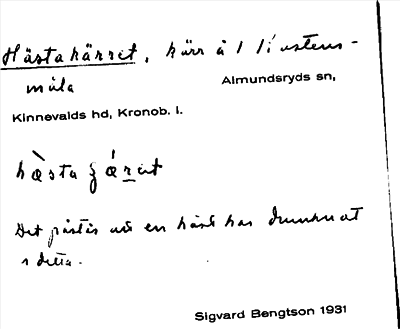 Hästakärret, kärr å 1 Justens-
måla Almundsryds sn,
Kinnevalds hd, Kronob. l.
hæsta
Det påstås att en häst har drunknat
i detta.
Sigvard Bengtson 1931